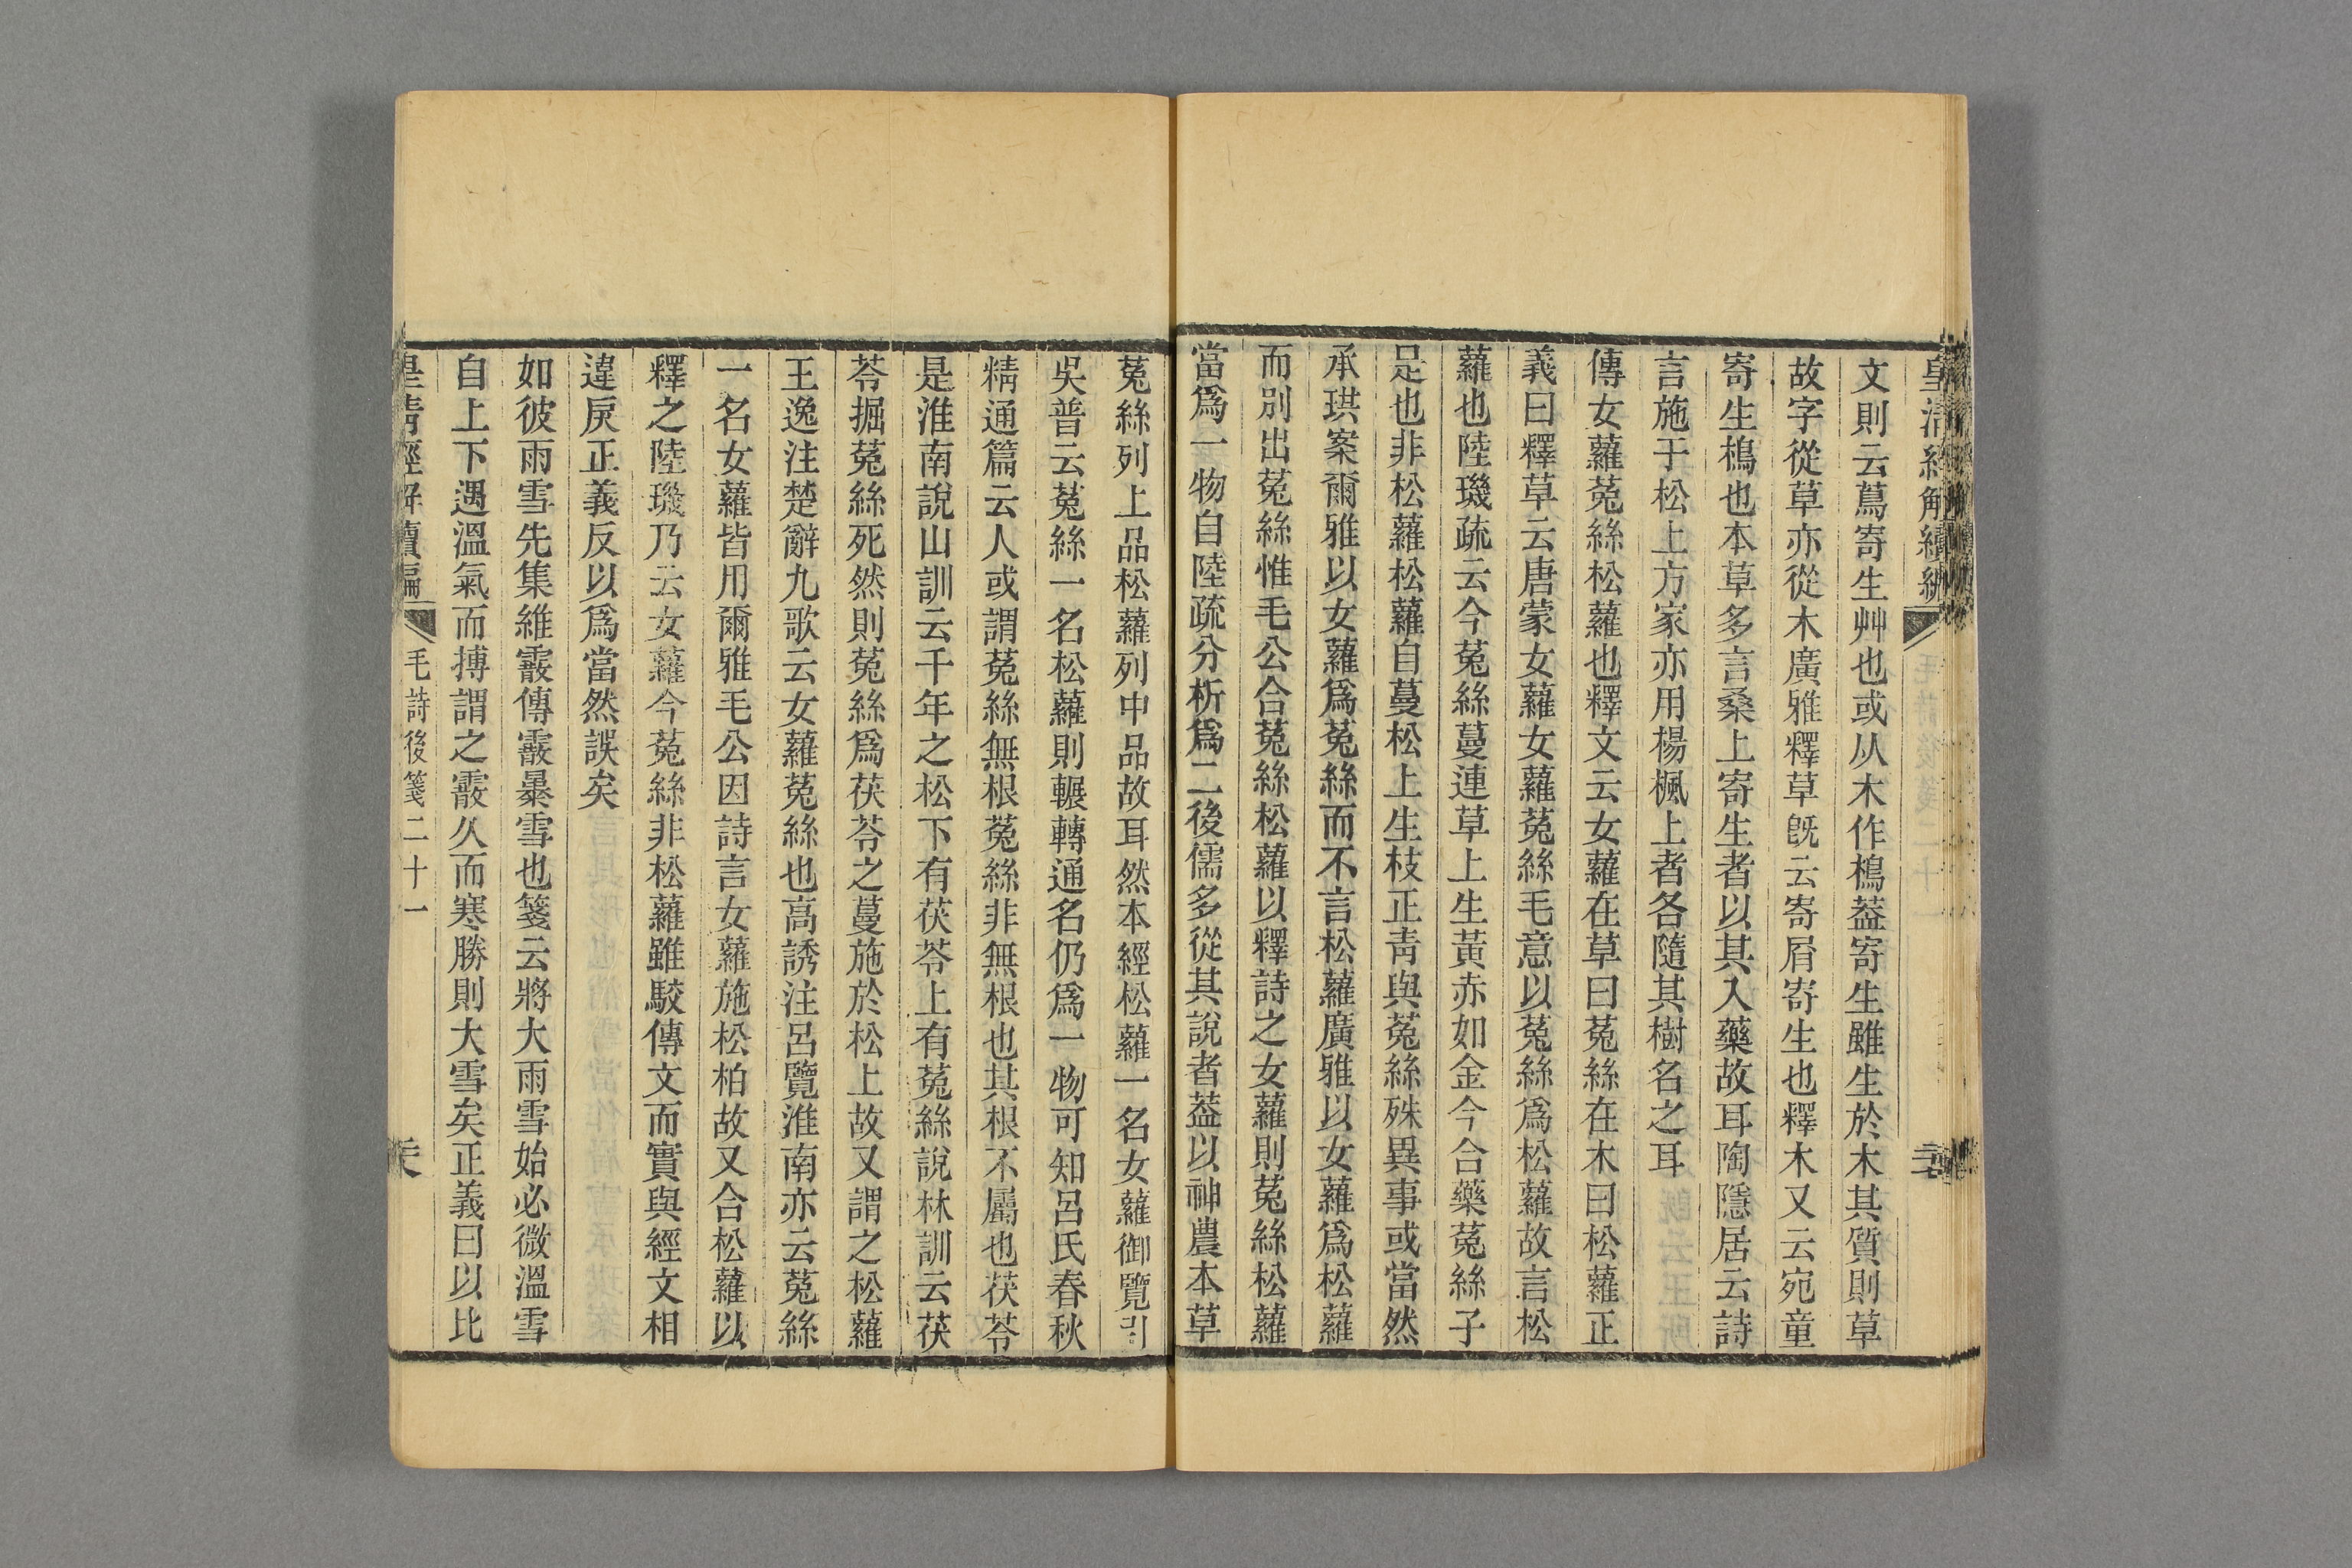 皇清經解續編
文則云蔦寄生艸也或从木作樢葢寄生雖生於木其質則草
故字從草亦從木廣雅釋草旣云寄屑寄生也釋木又云宛童
寄生樢也本草多言桑上寄生者以其入藥故耳陶隱居云詩
言施于松上方家亦用楊楓上者各隨其樹名之耳
傳女蘿菟絲松蘿也釋文云女蘿在草曰菟絲在木曰松蘿正
義曰釋草云唐蒙女蘿女蘿菟絲毛意以菟絲爲松蘿故言松
蘿也陸璣疏云今菟絲蔓連草上生黃赤如金今合藥菟絲子
是也非松蘿松蘿自蔓松上生枝正靑與菟絲殊異事或當然
承珙案爾雅以女蘿爲菟絲而不言松蘿廣雅以女蘿爲松蘿
而別出菟絲惟毛公合菟絲松蘿以釋詩之女蘿則菟絲松蘿
當爲一物自陸疏分析爲二後儒多從其說者葢以神農本草
菟絲列上品松蘿列中品故耳然本經松蘿一名女蘿御覽引
吳普云菟絲一名松蘿則輾轉通名仍爲一物可知呂氏春秋
精通篇云人或謂菟絲無根菟絲非無根也其根不屬也茯苓
是淮南說山訓云千年之松下有茯苓上有菟絲說林訓云茯
苓掘菟絲死然則菟絲爲茯苓之蔓施於松上故又謂之松蘿
王逸注楚辭九歌云女蘿菟絲也高誘注呂覽淮南亦云菟絲
一名女蘿皆用爾雅毛公因詩言女蘿施松柏故又合松蘿以
釋之陸璣乃云女蘿今菟絲非松蘿雖駮傳文而實與經文相
違戾正義反以爲當然誤矣
如彼雨雪先集維霰傳霰暴雪也箋云將大雨雪始必微溫雪
自上下遇溫氣而摶謂之霰久而寒勝則大雪矣正義曰以比
皇清經解續編 毛詩後箋二十一